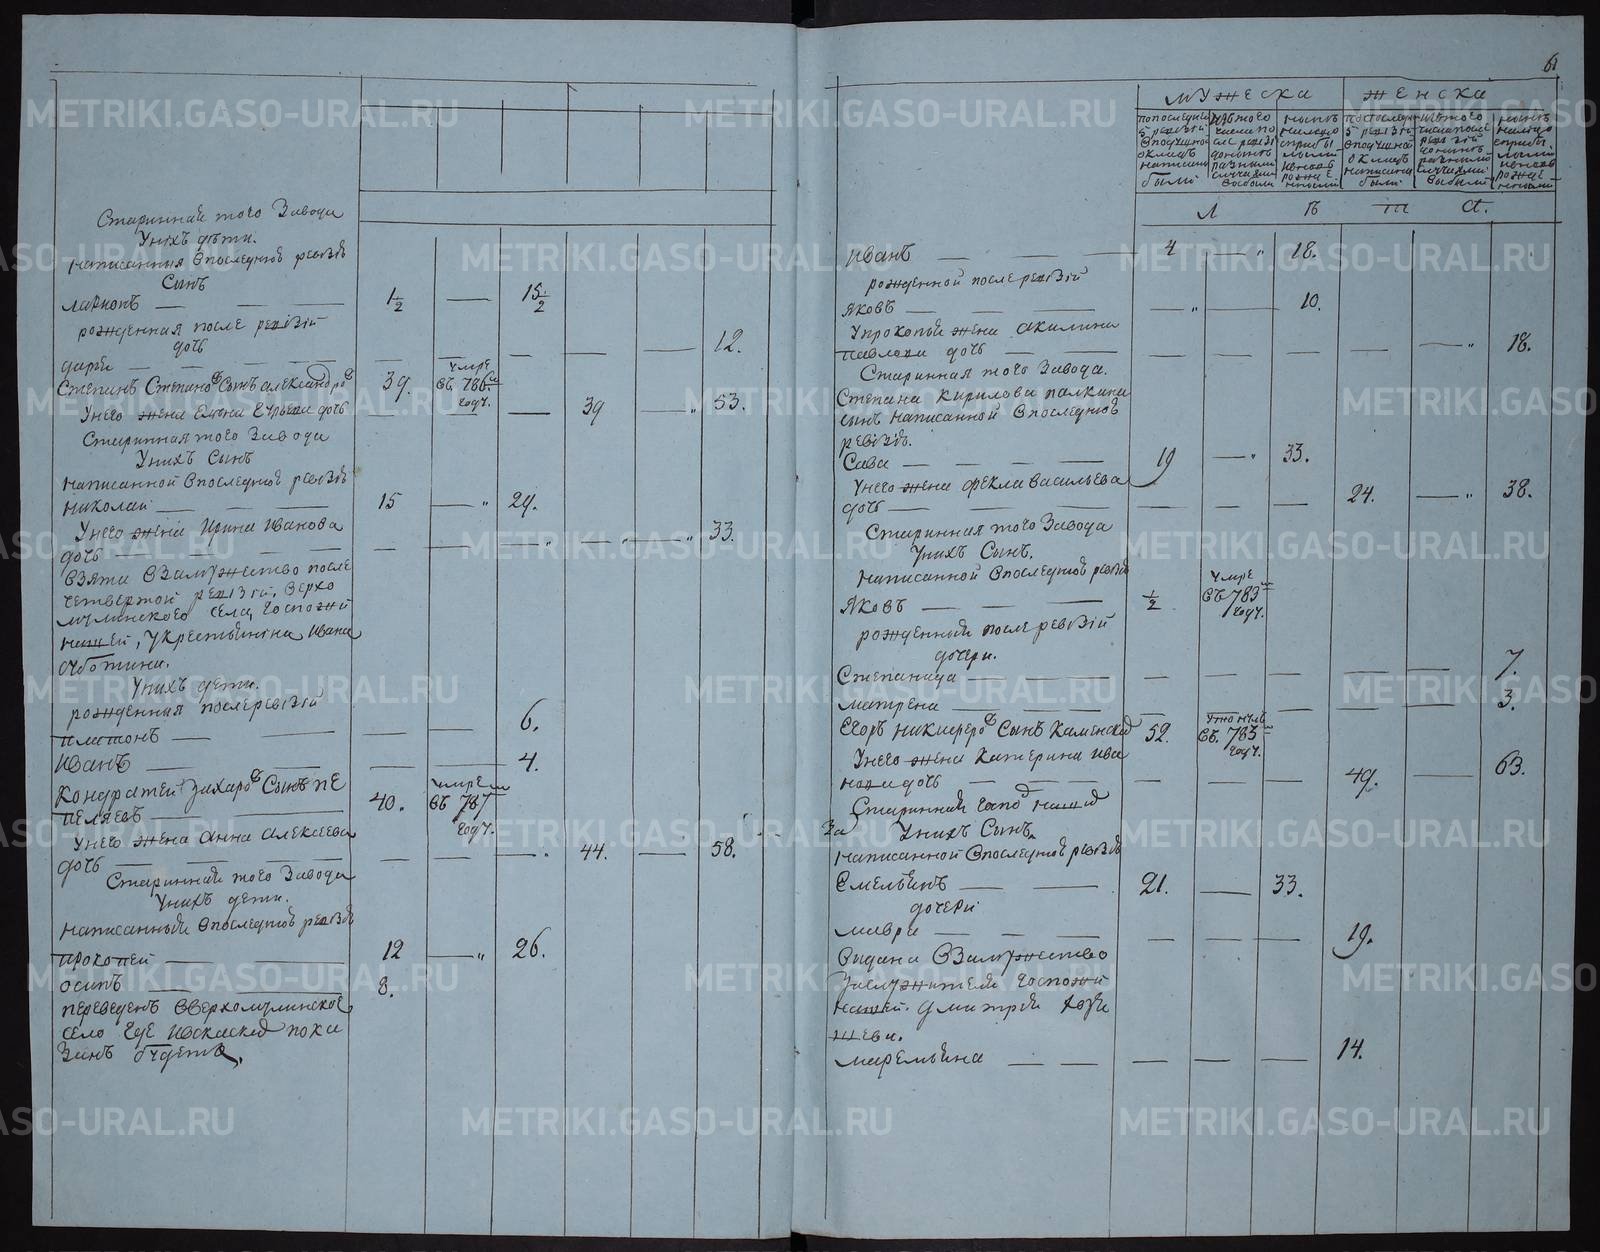 Стариннаѣ того Завода
Унихъ дѣти.
написанныя Впоследнюѣ ревѣзѣ
Сынъ
ларионъ 1/2 15 1/2
рожденная после ревѣзiи
дочь
даря 12.
Степанъ Степановъ Сынъ александровъ 39. умре въ 786м году.
Унего жена Елена Гурьева дочь 39 53.
Стариннаѧ того Завода
Унихъ Сынъ
написанной Впоследнюѣ ревѣзѣ
николай 15 29.
Унего жена Ирина Иванова
дочь 33.
Взята Взамужество после
четвертой ревизiи, верхо
муллинского села, Госпожи
нашей, Укрестьянина Ивана
Унихъ дети.
рожденная послеревѣзiи
платонъ 6.
Иванъ 4.
Кондратей Захаровъ Сынъ пе
пеляевъ 40. умре въ 787м году.
Унего жена анна алексеева
дочь 44. 58.
Стариннаѣ того Завода
Унихъ дети.
написанныѣ Впоследнюѣ ревѣзѣ
прокопей 12 26.
осипъ 8.
переведенъ Вверхомулинское
село где ивскаской пока
занъ будетъ.
61
мужеска женска
попоследней 5 ревѣзiи Вподушной окладъ написаны были
изътого числа после ревѣзiи доныне разными случаями выбыли
ныне налицо сприбылыми ивновь рожденными
попоследней 5 ревѣзiи Вподушной окладъ написаны были
изътого числа после ревѣзiи доныне разными случаями выбыли
ныне налицо сприбылыми ивновь рожденными
Л ѣ т а.
Иванъ 4 18.
рожденной после ревѣзiи
яковъ 10.
Упрокопья жена акилина
павлова дочь 18.
Старинная того Завода.
Степана Кирилова палкина
сынъ написанной Впоследнюѣ
ревѣзѣ.
Сава 19 33.
Унего жена фекла васильева
дочь 24. 38.
Старинная того Завода
Унихъ Сынъ.
написанной Впоследнюѣ ревѣзѣ
Яковъ 1/2 умре въ 783м году.
рожденныѣ после ревѣзiи
дочери.
Степанида 7.
матрена 3.
Егоръ никифоровъ Сынъ Каменской 52. въ 783м году.
Унего жена Катерина ива
нова дочь 49. 63.
Стариннаѣ госпож нашей
За
Унихъ Сынъ
написанной Впоследнюѣ ревѣзѣ
Емельянъ 21. 33.
дочери
мавра 19.
Выдана Взамужество
Заслужителя госпожи
нашей. Дмитрея
маремьяна 14.